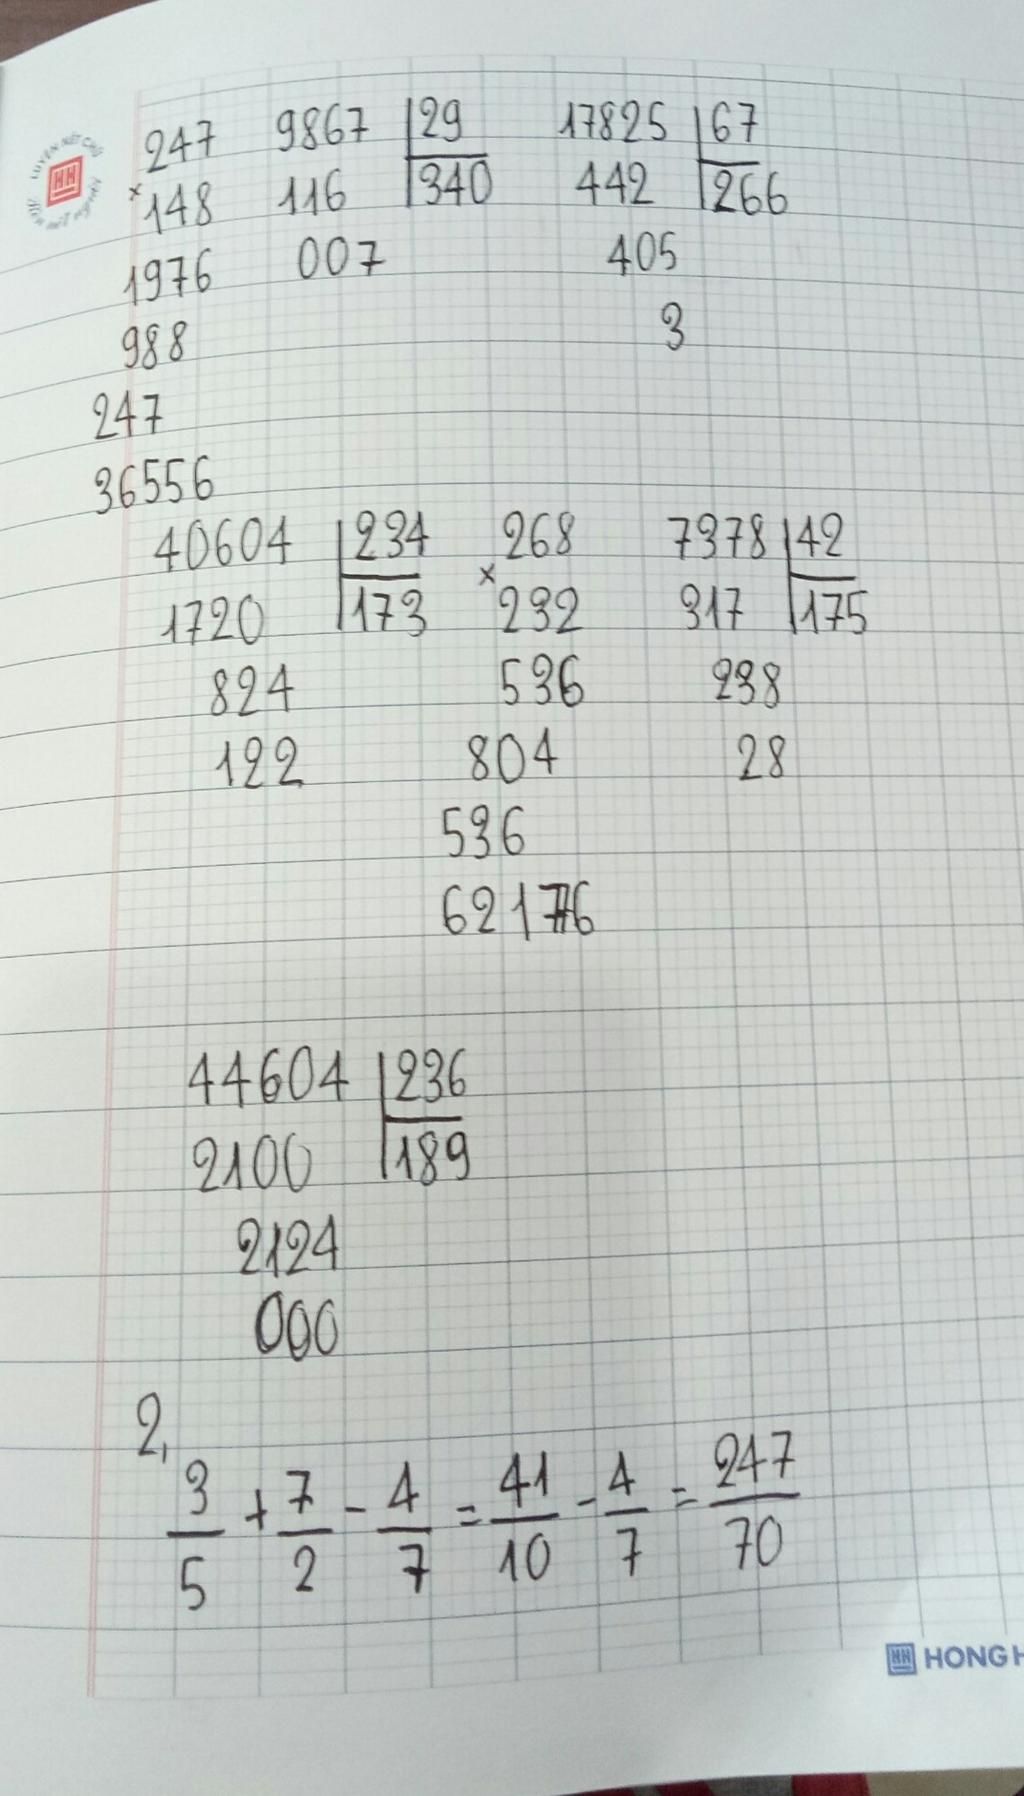 247 9867 29 17825 67
× 148 116 340 442 266
1976 007 405
988 3
247
36556
40604 234 268 7378 42
1720 173 × 232 317 175
824 536 238
122 804 28
536
62176
44604 236
2100 189
2124
000
2,
3/5 + 7/2 - 4/7 = 41/10 - 4/7 = 247/70
HH HONG H